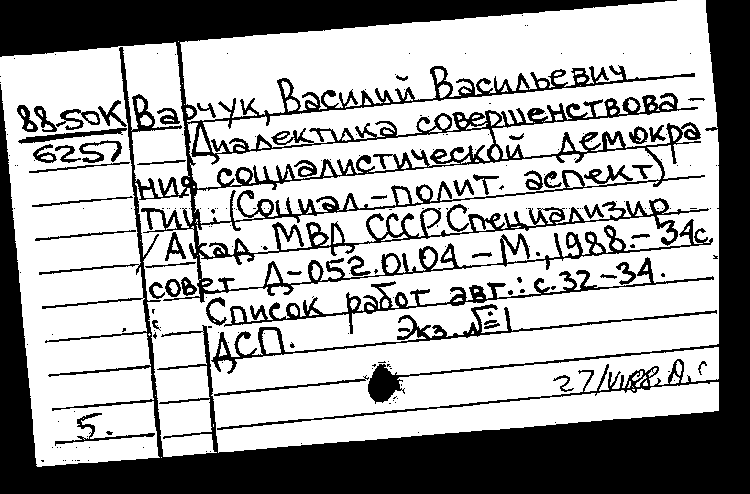 88-50К Варчук, Василий Васильевич
6257 Диалектика совершенствова-
ния социалистической демокра-
тии: (Социал.-полит. аспект)
/Акад. МВД СССР. Специализир.
совет Д-052.01.04. - М., 1988. - 34с.
Список работ авт.: с. 32-34.
ДСП. Экз. №1
27/VI88. А.
5.